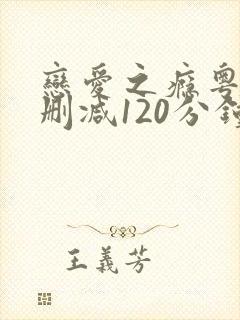 戀愛之癮粵
刪减120分鐘
王義芳